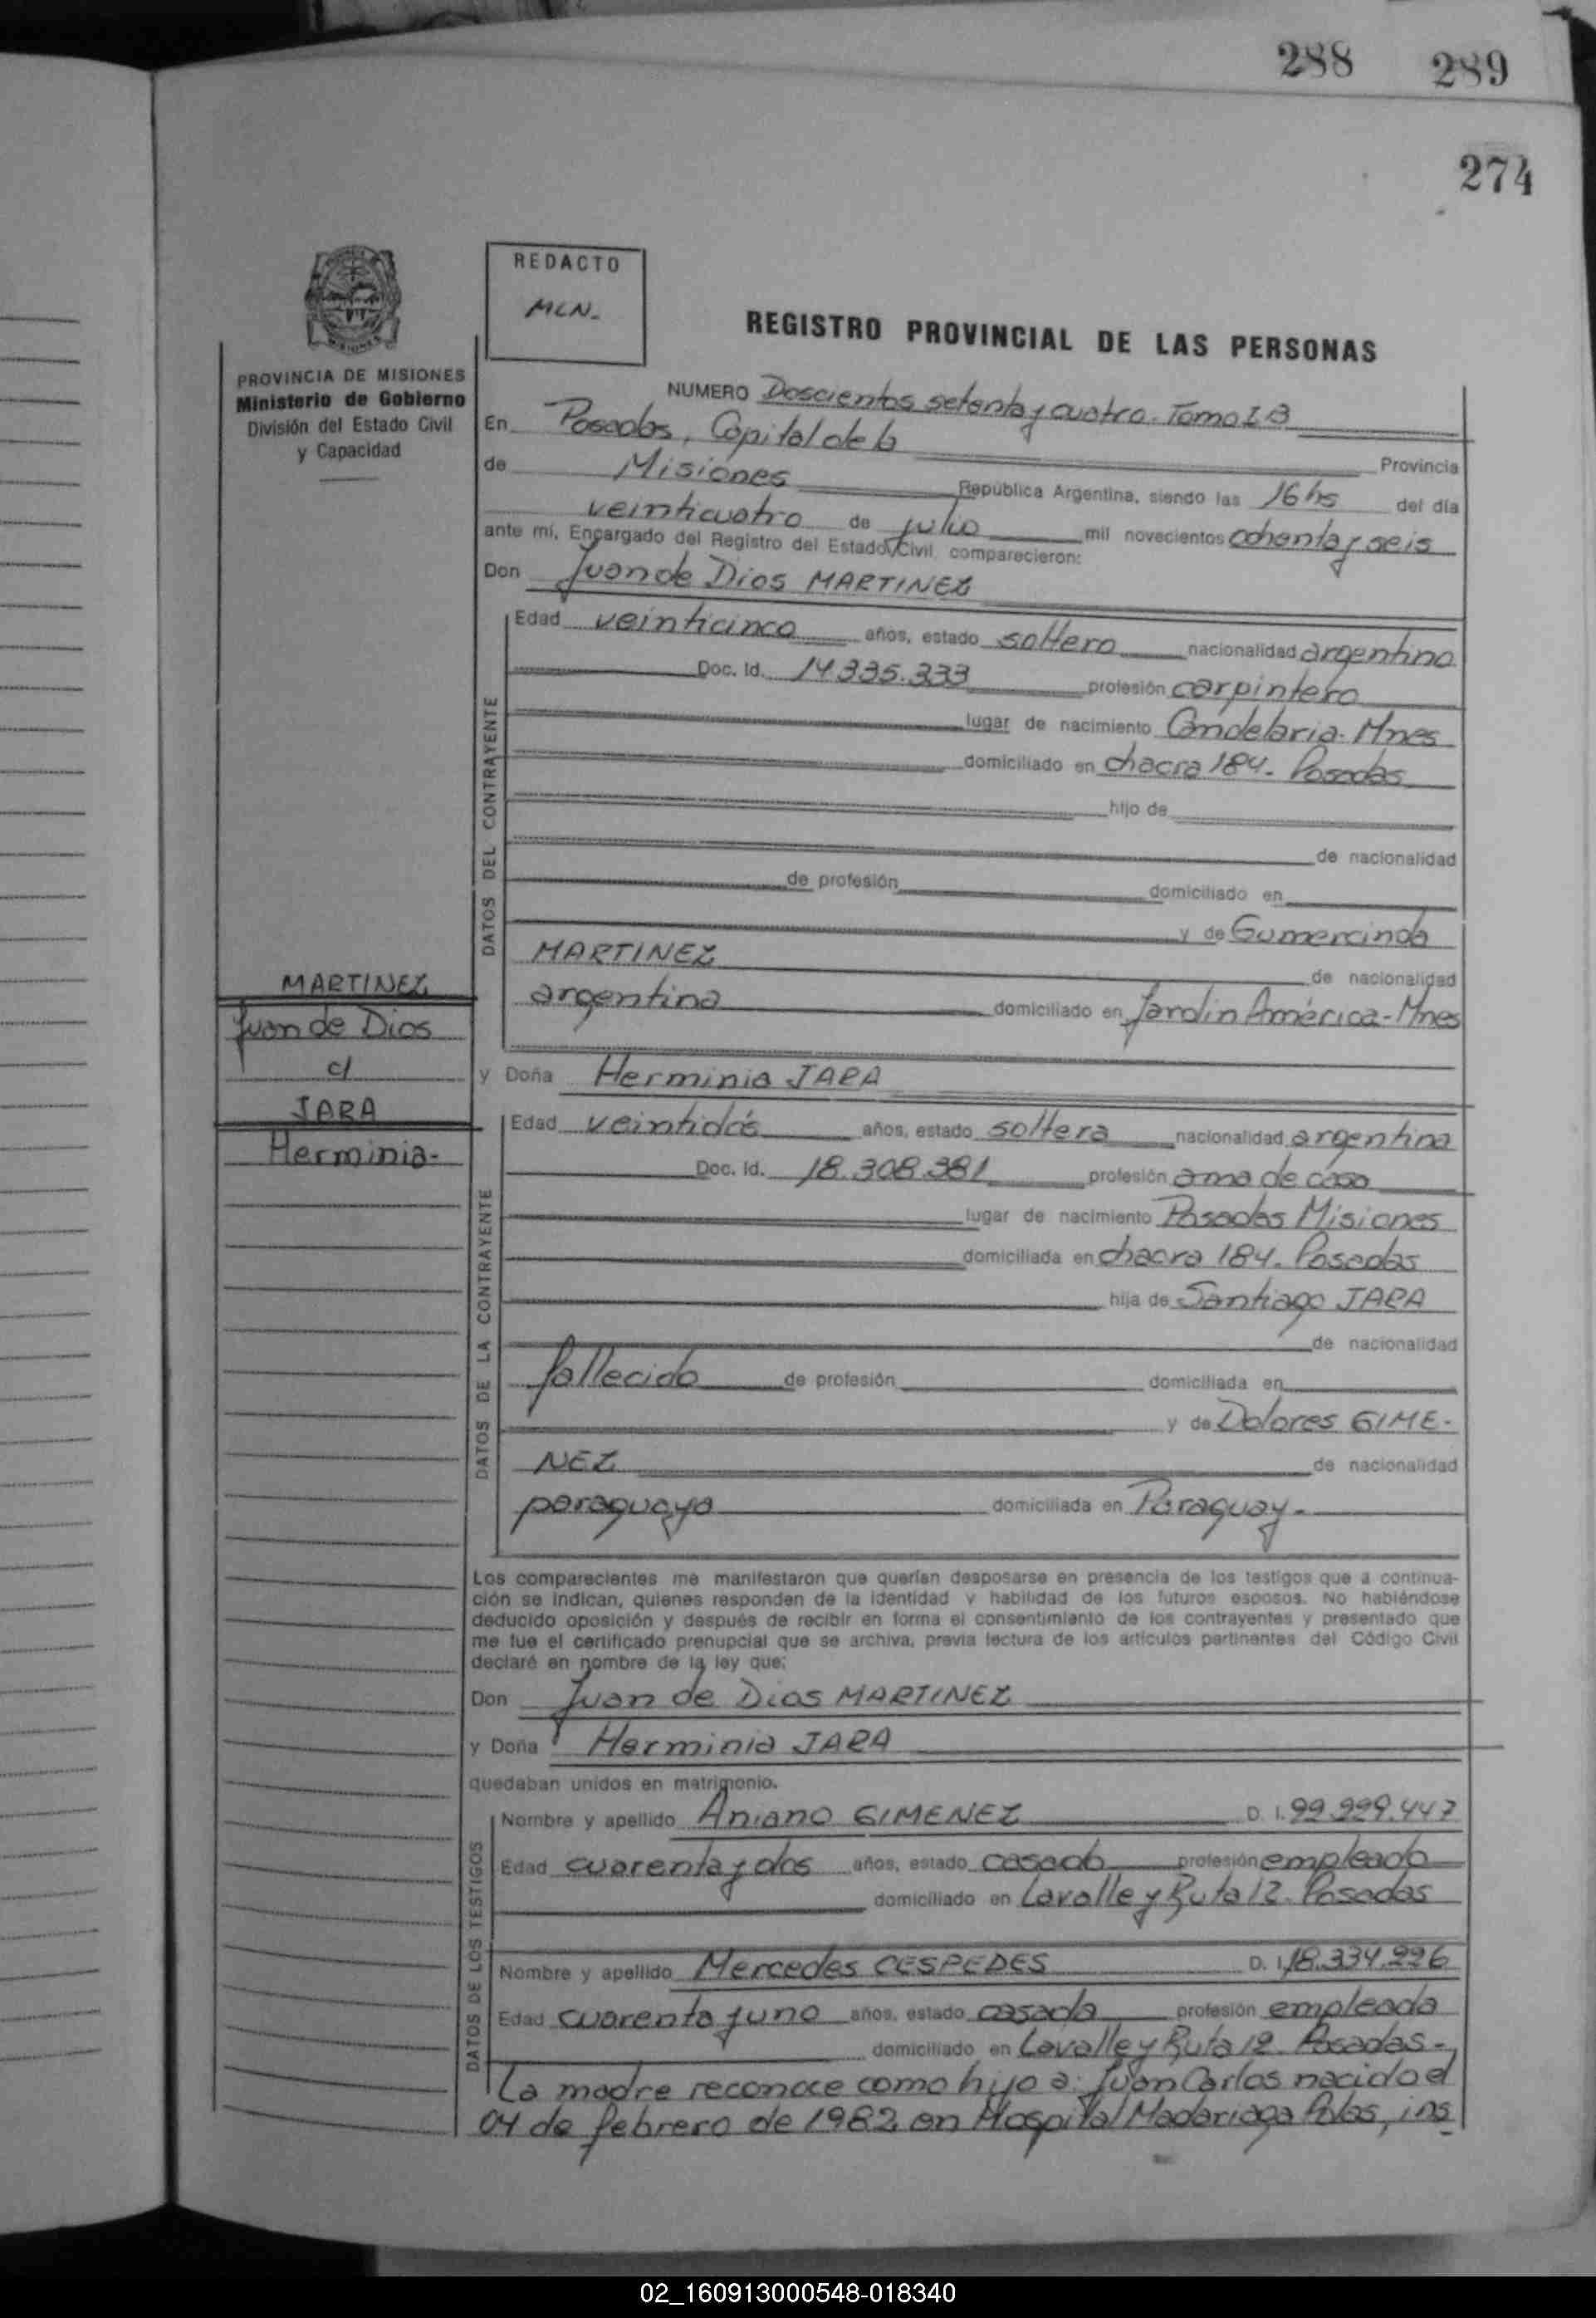 288 289
274
REDACTO
MLN.
REGISTRO PROVINCIAL DE LAS PERSONAS
PROVINCIA DE MISIONES
Ministerio de Gobierno
División del Estado Civil
y Capacidad
NUMERO Doscientos setenta y cuatro. Tomo I B
En Posadas, Capital de la Provincia
de Misiones República Argentina, siendo las 16 hs del día
veinticuatro de julio mil novecientos ochenta y seis
ante mí, Encargado del Registro del Estado Civil, comparecieron:
Don Juan de Dios MARTINEZ
DATOS DEL CONTRAYENTE
Edad veinticinco años, estado soltero nacionalidad argentino
Doc. Id. 14.335.333 profesión carpintero
lugar de nacimiento Candelaria-Mnes
domiciliado en chacra 184. Posadas
hijo de
de nacionalidad
de profesión domiciliado en
y de Gumercinda
MARTINEZ de nacionalidad
argentina domiciliado en Jardín América-Mnes
MARTINEZ
Juan de Dios
c/
JARA
Herminia-
y Doña Herminia JARA
DATOS DE LA CONTRAYENTE
Edad veintidós años, estado soltera nacionalidad argentina
Doc. Id. 18.308.381 profesión ama de casa
lugar de nacimiento Posadas Misiones
domiciliada en chacra 184. Posadas
hija de Santiago JARA
de nacionalidad
fallecido de profesión domiciliada en
y de Dolores GIME-
NEZ de nacionalidad
paraguaya domiciliada en Paraguay.-
Los comparecientes me manifestaron que querían desposarse en presencia de los testigos que a continua-
ción se indican, quienes responden de la identidad y habilidad de los futuros esposos. No habiéndose
deducido oposición y después de recibir en forma el consentimiento de los contrayentes y presentado que
me fue el certificado prenupcial que se archiva, previa lectura de los artículos pertinentes del Código Civil
declaré en nombre de la ley que:
Don Juan de Dios MARTINEZ
y Doña Herminia JARA
quedaban unidos en matrimonio.
DATOS DE LOS TESTIGOS
Nombre y apellido Aniano GIMENEZ D. I. 99.999.447
Edad cuarenta y dos años, estado casado profesión empleado
domiciliado en Lavalle y Ruta 12. Posadas
Nombre y apellido Mercedes CESPEDES D. I. 18.334.226
Edad cuarenta y uno años, estado casada profesión empleada
domiciliado en Lavalle y Ruta 12. Posadas-
La madre reconoce como hijo a: Juan Carlos nacido el
04 de febrero de 1982 en Hospital Madariaga Pdas, ins
02_160913000548-018340